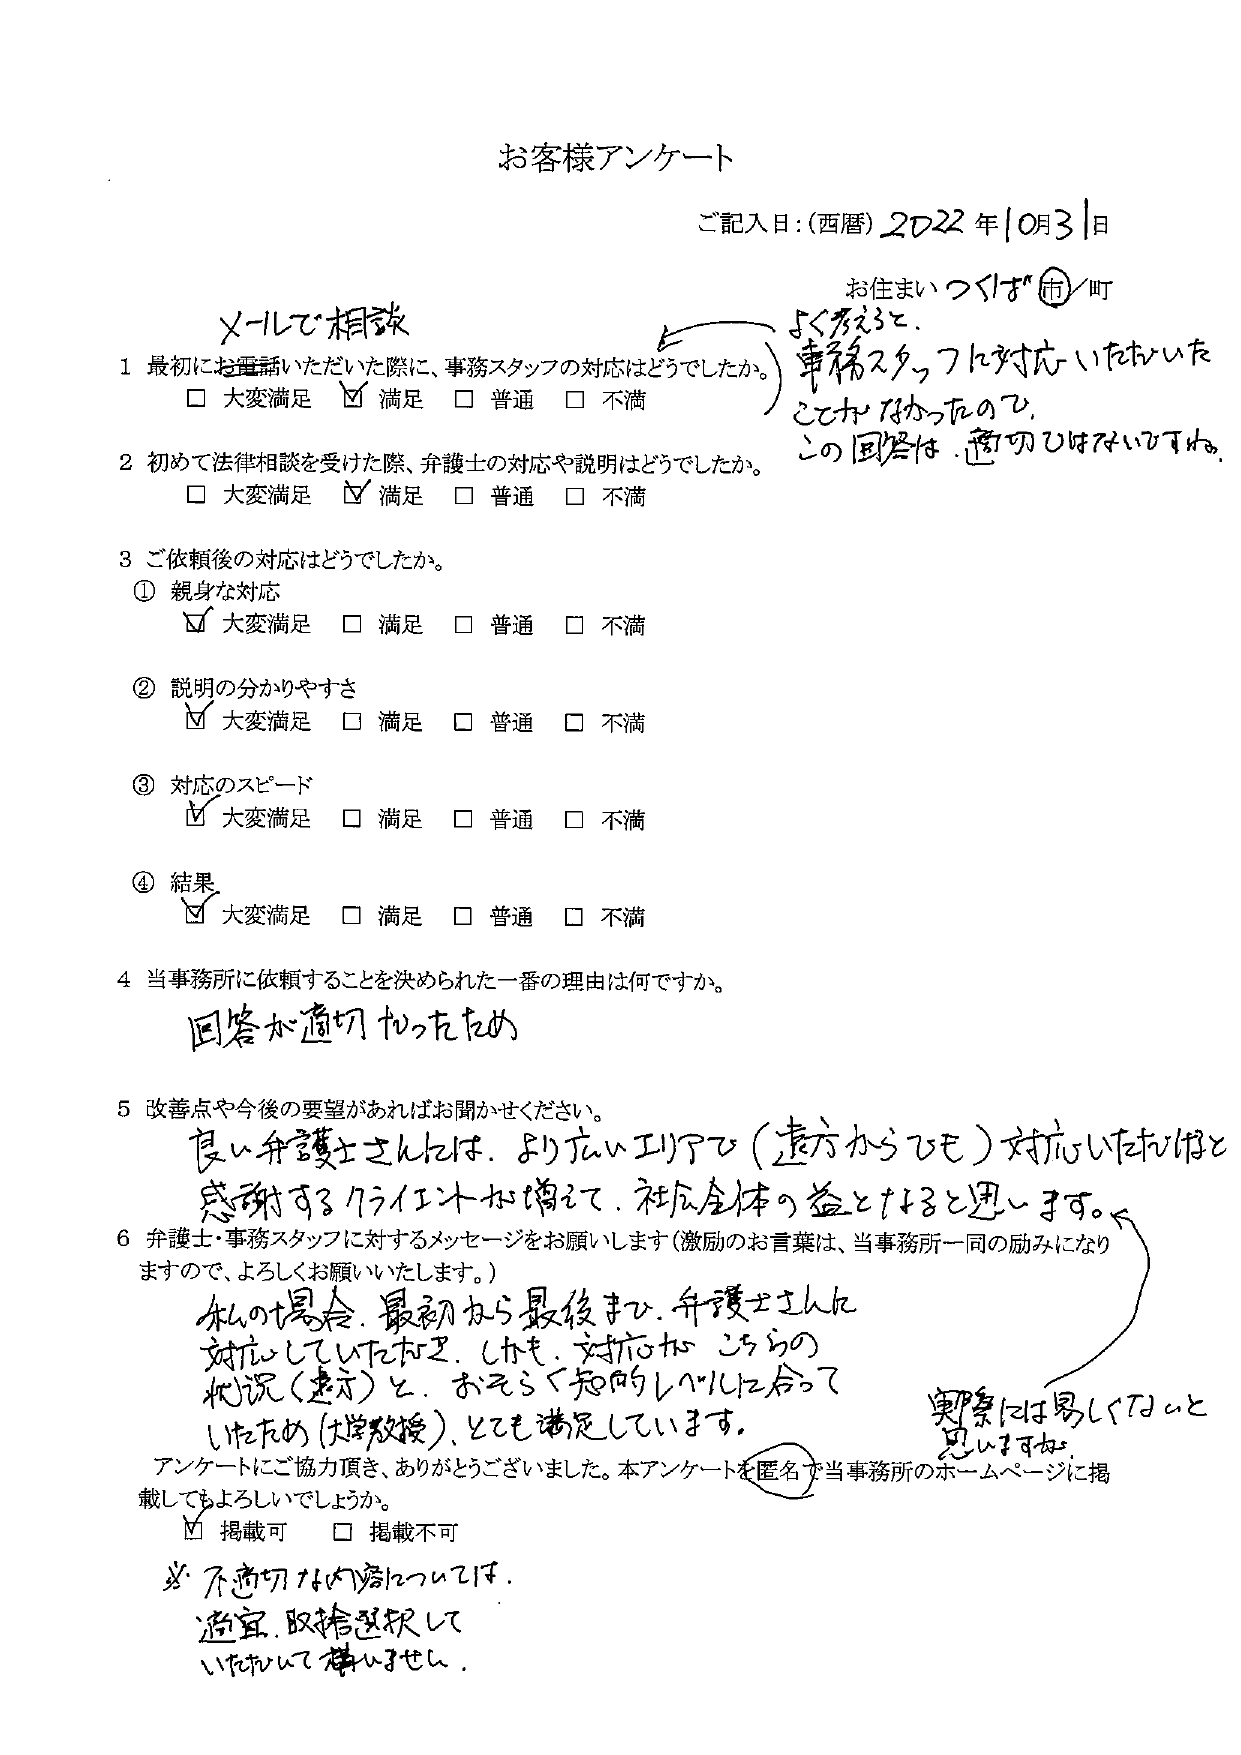 お客様アンケート
ご記入日：（西暦）2022年10月31日
お住まい つくば市／町
メールで相談
1 最初にお電話いただいた際に、事務スタッフの対応はどうでしたか。
□ 大変満足 ☑ 満足 □ 普通 □ 不満
よく考えると、
事務スタッフに対応いただいた
ことがなかったので、
この回答は、適切ではないですね。
2 初めて法律相談を受けた際、弁護士の対応や説明はどうでしたか。
□ 大変満足 ☑ 満足 □ 普通 □ 不満
3 ご依頼後の対応はどうでしたか。
① 親身な対応
☑ 大変満足 □ 満足 □ 普通 □ 不満
② 説明の分かりやすさ
☑ 大変満足 □ 満足 □ 普通 □ 不満
③ 対応のスピード
☑ 大変満足 □ 満足 □ 普通 □ 不満
④ 結果
☑ 大変満足 □ 満足 □ 普通 □ 不満
4 当事務所に依頼することを決められた一番の理由は何ですか。
回答が適切だったため
5 改善点や今後の要望があればお聞かせください。
良い弁護士さんには、より広いエリアで（遠方からでも）対応いただけると
感謝するクライエントが増えて、社会全体の益となると思います。
6 弁護士・事務スタッフに対するメッセージをお願いします（激励のお言葉は、当事務所一同の励みになり
ますので、よろしくお願いいたします。）
私の場合、最初から最後まで、弁護士さんに
対応していただき、しかも、対応が こちらの
状況（遠方）と、おそらく知的レベルに合って
いたため（大学教授）、とても満足しています。
実際には易しくないと
思いますが。
アンケートにご協力頂き、ありがとうございました。本アンケートを匿名で当事務所のホームページに掲
載してもよろしいでしょうか。
☑ 掲載可 □ 掲載不可
※ 不適切な内容については、
適宜、取捨選択して
いただいて構いません．